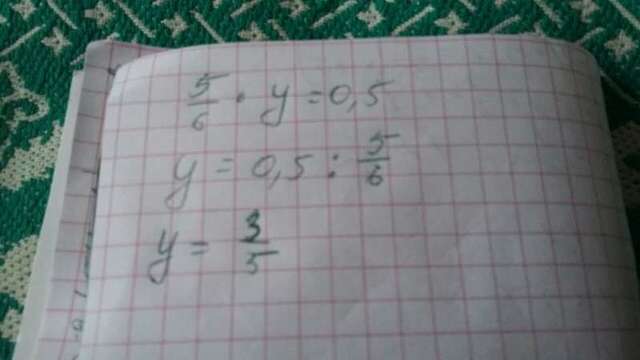 5/6 · y = 0,5
y = 0,5 : 5/6
y = 3/5